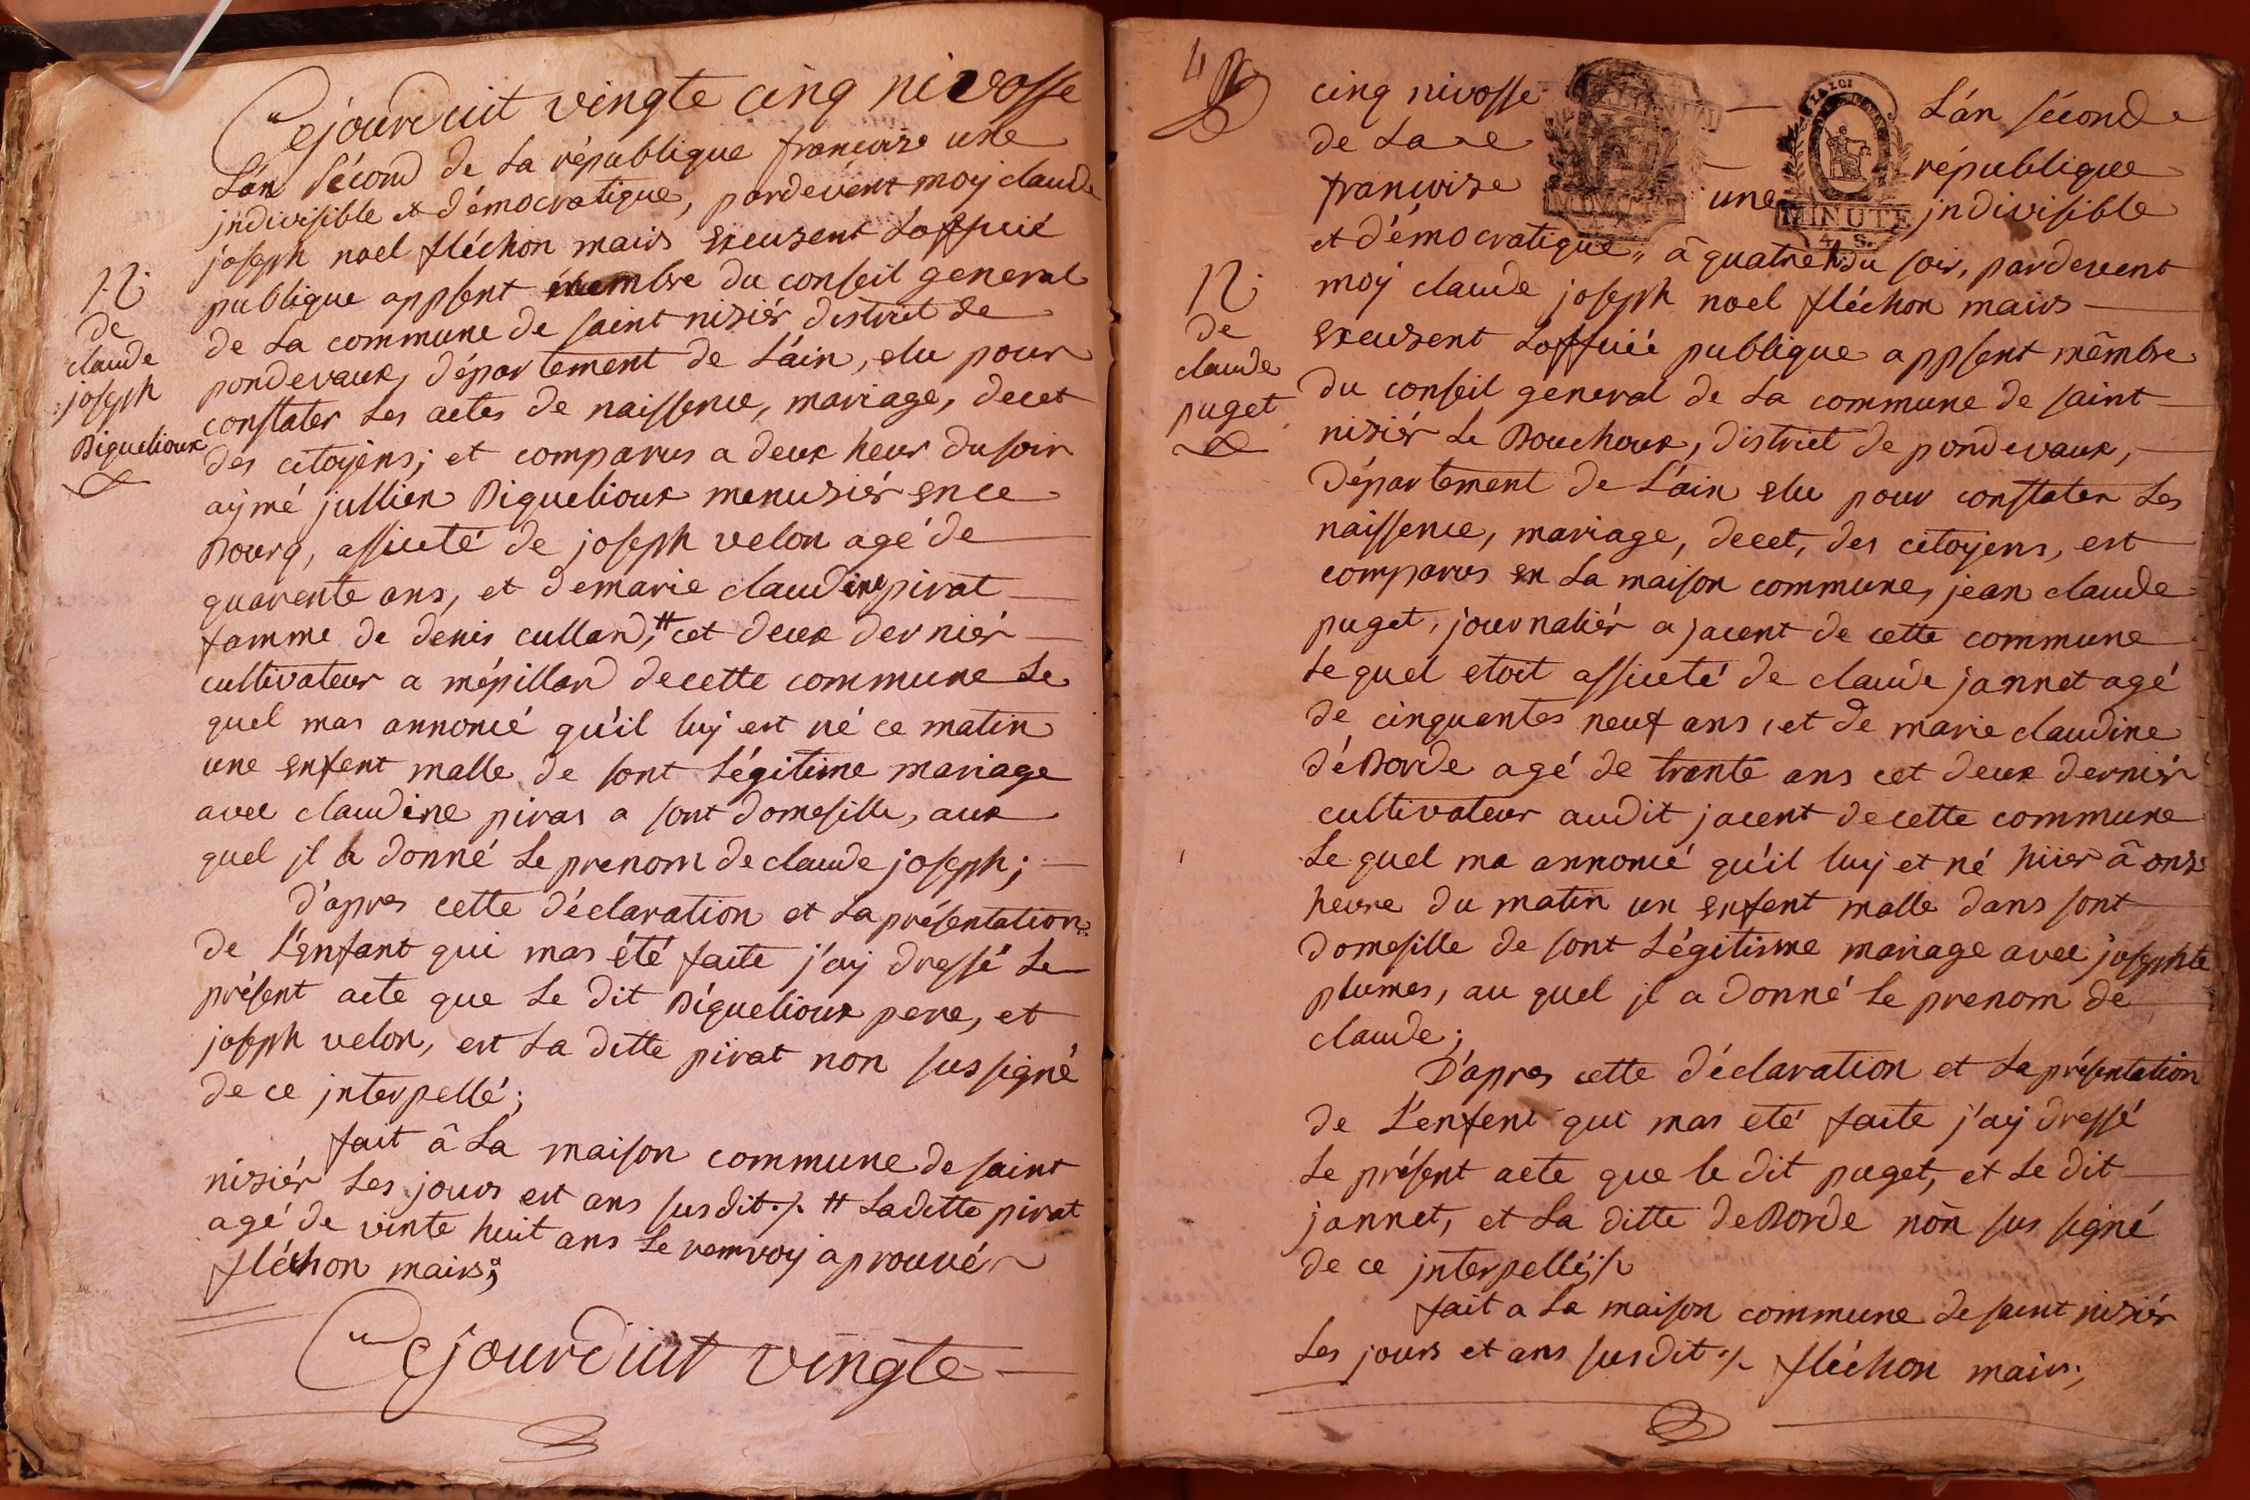 Cejourduit vingte cinq nivosse
L'an sécond de La république francoise une
jndivisible et d'émocratique, pardevént moy claude
joseph noel fléchon mairs exeusent Loffuié
publique appsent membre du conseil general
de La commune de saint nisiér, district de
pondevaux, département de L'ain, elu pour
constater Les actes de naissence, mariage, decet
des citoyens; et comparus a deux heur du soir
aymé jullien Biguelioux menusiér en ce
Bourg, assicté de joseph velon agé de
quarente ans, et de marie claudine pirat
famme de denis culland, # cet deux derniér
cultivateur a mépilland de cette commune Le
quel mas annoncé qu'il luy est né ce matin
une enfent malle de sont Légitime mariage
avec claudine piras a sont domesille, aux
quel jl a donné Le prenom de claude joseph;
d'apres cette déclaration et La présentation
de L'enfant qui mas été faite j'ay dressé Le
présent acte que Le dit Biguelioux pere, et
joseph velon, est La ditte pirat non sus signé
de ce jnterpellé;
fait â La maison commune de saint
nisiér Les jours est ans susdit ./. # La ditte pirat
agé de vinte huit ans Le remvoy aprouvér
fléchon mairs;
Cejourduit vingte
N.
de
claude
joseph
Biguelioux
4
cinq nivosse L'an sécond
de La re république
francoise une jndivisible
MINUTE
LA LOI
MINUTE
4 S.
et d'émocratique, â quatre h. du soir, pardevent
moy claude joseph noel fléchon mairs
exeusent Loffuié publique appsent mêmbre
du conseil general de La commune de saint
nisiér Le Bouchoux, district de pondevaux,
département de L'ain elu pour constater Les
naissence, mariage, decet, des citoyens, est
comparus en La maison commune, jean claude
puget, journaliér a jacent de cette commune
Le quel etoit assicté de claude jannet agé
de cinquantes neuf ans, et de marie claudine
déBorde agé de trente ans cet deux derniér
cultivateur audit jacent de cette commune
Le quel ma annoncé qu'il luy et né hiier â onze
heure du matin un enfent malle dans sont
domesille de sont Légitisme mariage avec josephte
plumes, au quel jl a donné Le prenom de
claude;
D'apres cette déclaration et La présentation
de L'enfent qui mas eté faite j'ay dressé
Le présent acte que le dit puget, et Le dit
jannet, et La ditte deBorde non sus signé
de ce jnterpellé; ./.
fait a La maison commune de saint nisiér
Les jours et ans susdit ./. fléchon mairs;
N.
de
claude
puget